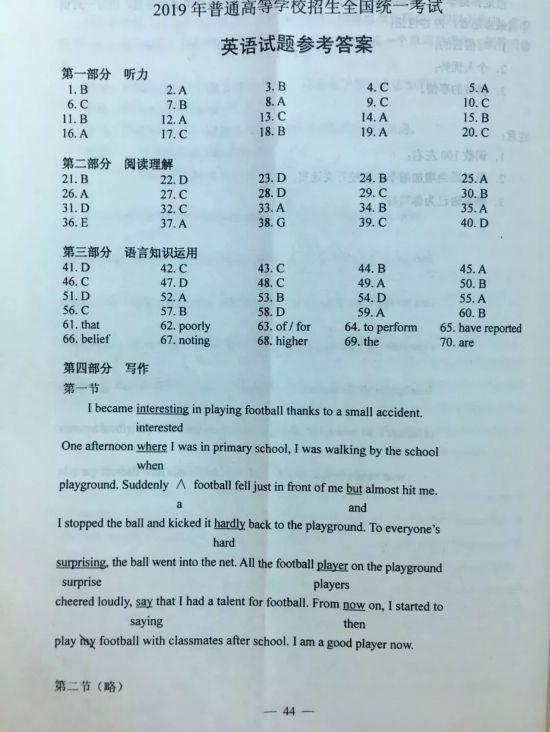 2019年普通高等学校招生全国统一考试
英语试题参考答案
第一部分 听力
1. B 2. A 3. B 4. C 5. A
6. C 7. B 8. A 9. C 10. C
11. B 12. A 13. C 14. A 15. B
16. A 17. C 18. B 19. A 20. C
第二部分 阅读理解
21. B 22. D 23. D 24. B 25. A
26. A 27. C 28. D 29. C 30. B
31. D 32. C 33. A 34. B 35. A
36. E 37. A 38. G 39. C 40. D
第三部分 语言知识运用
41. D 42. C 43. C 44. B 45. A
46. C 47. D 48. C 49. A 50. B
51. D 52. A 53. B 54. D 55. A
56. C 57. B 58. D 59. A 60. B
61. that 62. poorly 63. of / for 64. to perform 65. have reported
66. belief 67. noting 68. higher 69. the 70. are
第四部分 写作
第一节
I became interesting in playing football thanks to a small accident.
interested
One afternoon where I was in primary school, I was walking by the school
when
playground. Suddenly ∧ football fell just in front of me but almost hit me.
a and
I stopped the ball and kicked it hardly back to the playground. To everyone's
hard
surprising, the ball went into the net. All the football player on the playground
surprise players
cheered loudly, say that I had a talent for football. From now on, I started to
saying then
play my football with classmates after school. I am a good player now.
第二节（略）
— 44 —